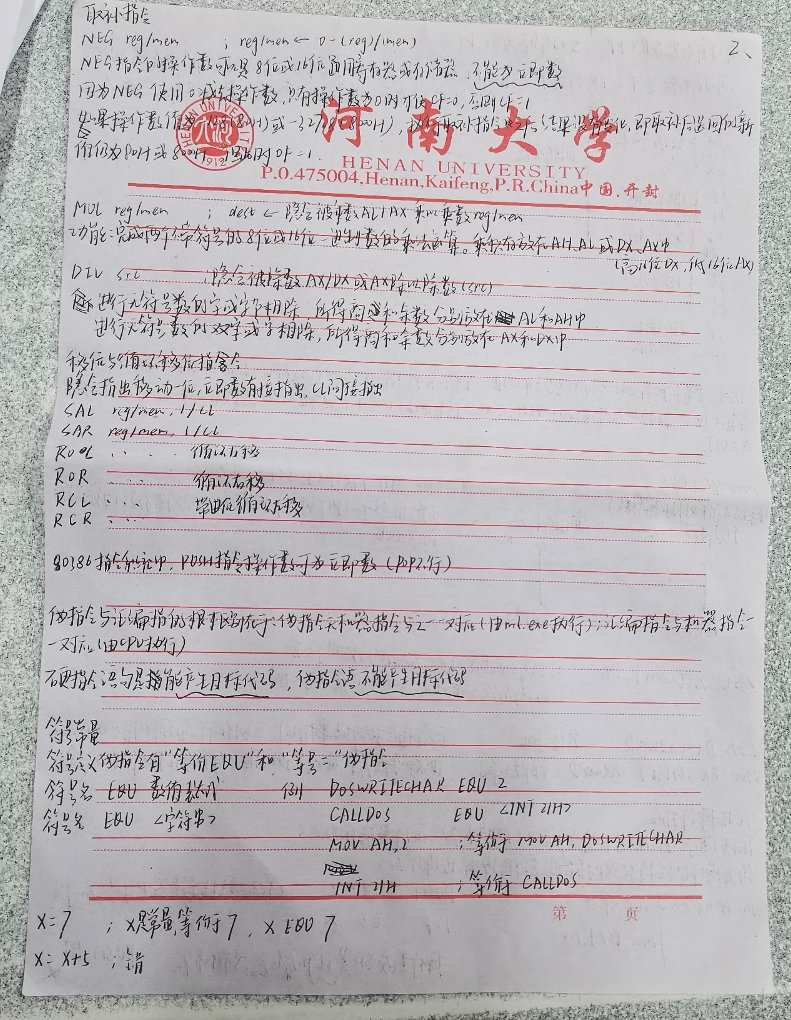 取补指令
2、
NEG reg/mem ; reg/mem ← 0-(reg)/(mem)
NEG指令的操作数可以是8位或16位通用寄存器或存储器, 不能为立即数
因为NEG使用0减去操作数, 只有操作数为0时才使CF=0, 否则CF=1
如果操作数值为 (80H) 或 -32768(8000H), 执行取补指令之后结果没有变化, 即取补后送回的新
值仍为80H或8000H 但此时OF=1.
河南大学
HENAN UNIVERSITY
1912
P.0.475004,Henan,Kaifeng,P.R.China中国.开封
MUL reg/mem ; dest ← 隐含被乘数AL/AX乘以乘数reg/mem
功能:完成两个无符号的8位或16位二进制数的乘法运算。乘积存放在AH、AL或DX、AX中
(高16位DX, 低16位AX)
DIV src ;隐含被除数AX/DX或AX除以除数(src)
进行无符号数的字或字节相除, 所得商和余数分别放在AL和AH中
进行无符号数的双字或字相除, 所得商和余数分别放在AX和DX中
移位与循环移位指令
隐含指出移动一位, 立即数直接指出, CL间接指出
SAL reg/mem, 1/CL
SAR reg/mem, 1/CL
ROL .. .. 循环左移
ROR .. .. 循环右移
RCL .. .. 带进位循环左移
RCR .. ..
80386指令系统中, PUSH指令操作数可为立即数 (POP不行)
伪指令与汇编指令的根本区别在于:伪指令无机器指令与之一一对应(由ml.exe执行);汇编指令与机器指令一
一对应(由CPU执行)
硬指令语句是指能产生目标代码, 伪指令语 不能产生目标代码
符号常量
符号定义伪指令有"等价EQU"和"等号="伪指令
符号名 EQU 数值表达式 例 DOSWRITECHAR EQU 2
符号名 EQU <字符串> CALLDOS EQU <INT 21H>
MOV AH,2 ;等价于 MOV AH, DOSWRITECHAR
INT 21H ;等价于 CALLDOS
第 页
X=7 ; X是常量, 等价于7, X EQU 7
X= X+5 ;错